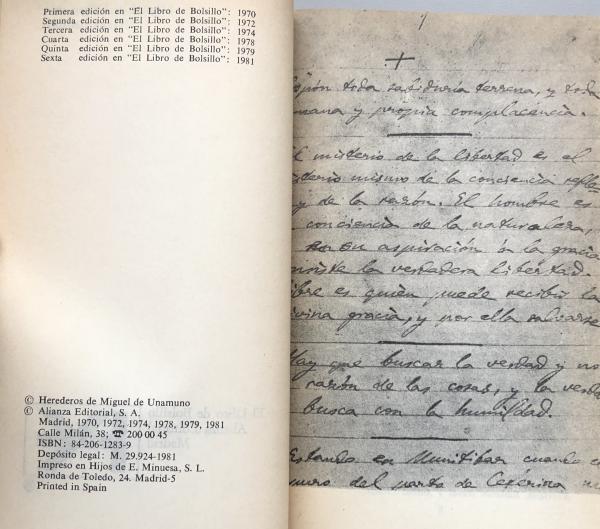 Primera edición en "El Libro de Bolsillo": 1970
Segunda edición en "El Libro de Bolsillo": 1972
Tercera edición en "El Libro de Bolsillo": 1974
Cuarta edición en "El Libro de Bolsillo": 1978
Quinta edición en "El Libro de Bolsillo": 1979
Sexta edición en "El Libro de Bolsillo": 1981
© Herederos de Miguel de Unamuno
© Alianza Editorial, S. A.
Madrid, 1970, 1972, 1974, 1978, 1979, 1981
Calle Milán, 38; ☎ 200 00 45
ISBN: 84-206-1283-9
Depósito legal: M. 29.924-1981
Impreso en Hijos de E. Minuesa, S. L.
Ronda de Toledo, 24. Madrid-5
Printed in Spain
toda sabiduría terrena, y toda
mana y propia complacencia.
l misterio de la libertad es el
isterio mismo de la conciencia refle
y de la razón. El hombre es
conciencia de la naturaleza,
en su aspiración a la gracia
nsiste la verdadera libertad.
ibre es quien puede recibir la
ivina gracia, y por ella salvarse
Hay que buscar la verdad y no
razón de las cosas, y la verda
busca con la humildad.
Estando en Munitibar cuando
del parto de Ceferina